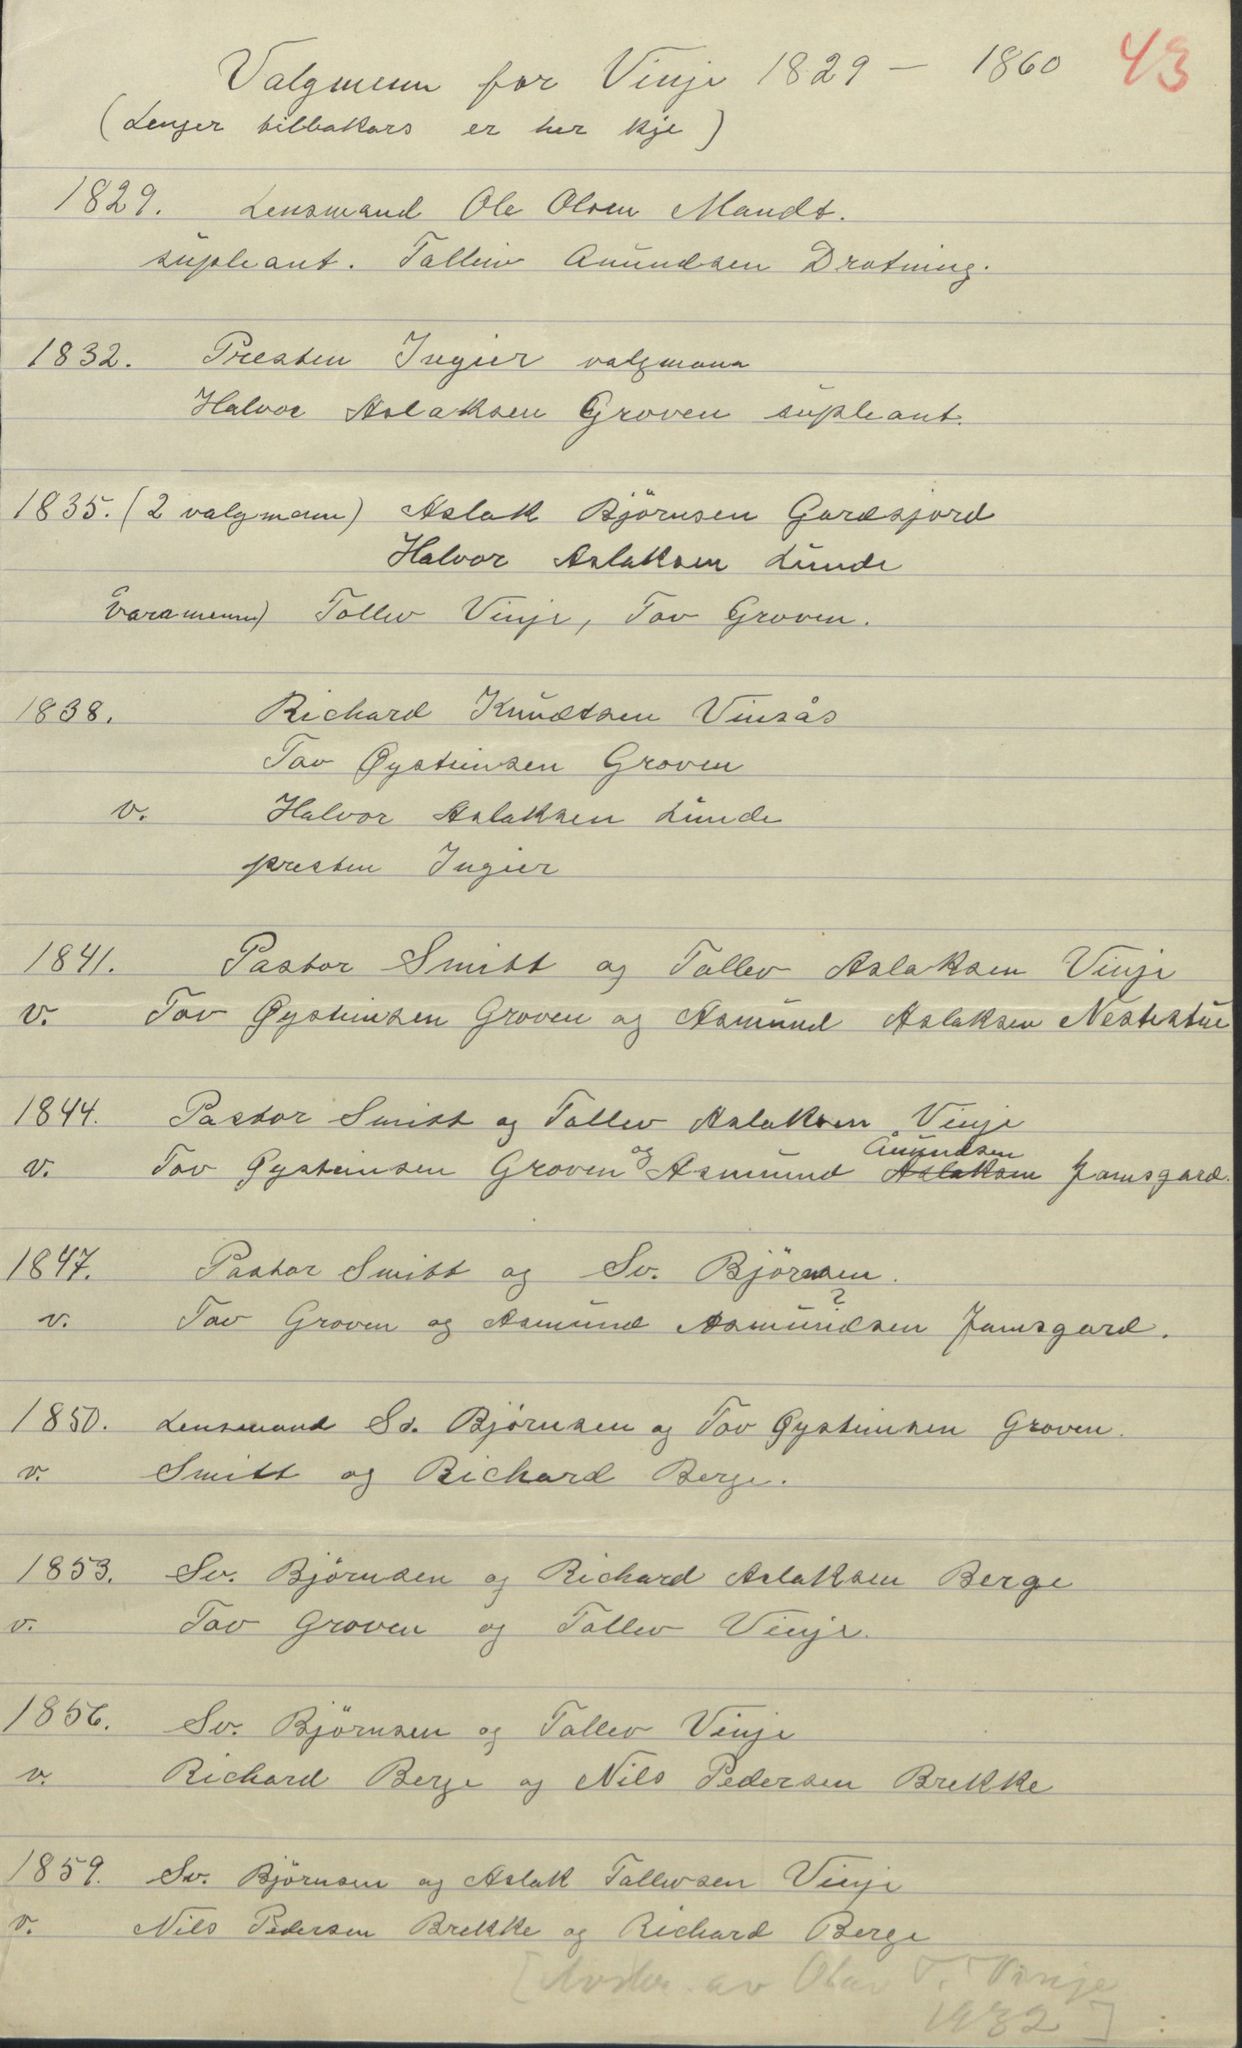 Valgmenn for Vinje 1829 — 1860 43
(Lenger tilbakars er her kje)
1829. Lensmand Ole Olsen Mandt.
supleant. Tallev Aanundsen Drotning.
1832. Presten Ingier valgmann
Halvor Aslaksen Groven supleant.
1835. (2 valgmenn) Aslak Björnsen Gardsjord
Halvor Aslaksen Lunde
Varamenn) Tollev Vinje, Tov Groven.
1838. Richard Knudtsen Vinsås
Tov Øysteinsen Groven
v. Halvor Aslaksen Lunde
presten Ingier
1841. Pastor Smitt og Tallev Aslaksen Vinje
v. Tov Øysteinsen Groven og Asmund Aslaksen Nestestue
1844. Pastor Smitt og Tallev Aslaksen Vinje
v. Tov Øysteinsen Groven og Asmund Aslaksen Anundsen Jamsgard.
1847. Pastor Smitt og Sv. Björnsen.
v. Tov Groven og Asmund Asmundsen ? Jamsgard.
1850. Lensmand Sv. Bjørnsen og Tov Øysteinsen Groven.
v. Smitt og Richard Berge.
1853. Sv. Björnsen og Richard Aslaksen Berge
v. Tov Groven og Tallev Vinje.
1856. Sv. Björnsen og Tallev Vinje
v. Richard Berge og Nils Pedersen Brekke
1859. Sv. Björnsen og Aslak Tallevsen Vinje
v. Nils Pedersen Brekke og Richard Berge
[Avskr. av Olav T. Vinje
1932]